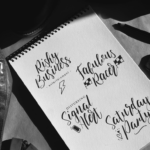 Risky
Business
Fabulous
Racer
Signal
Alert
Saturday
Party